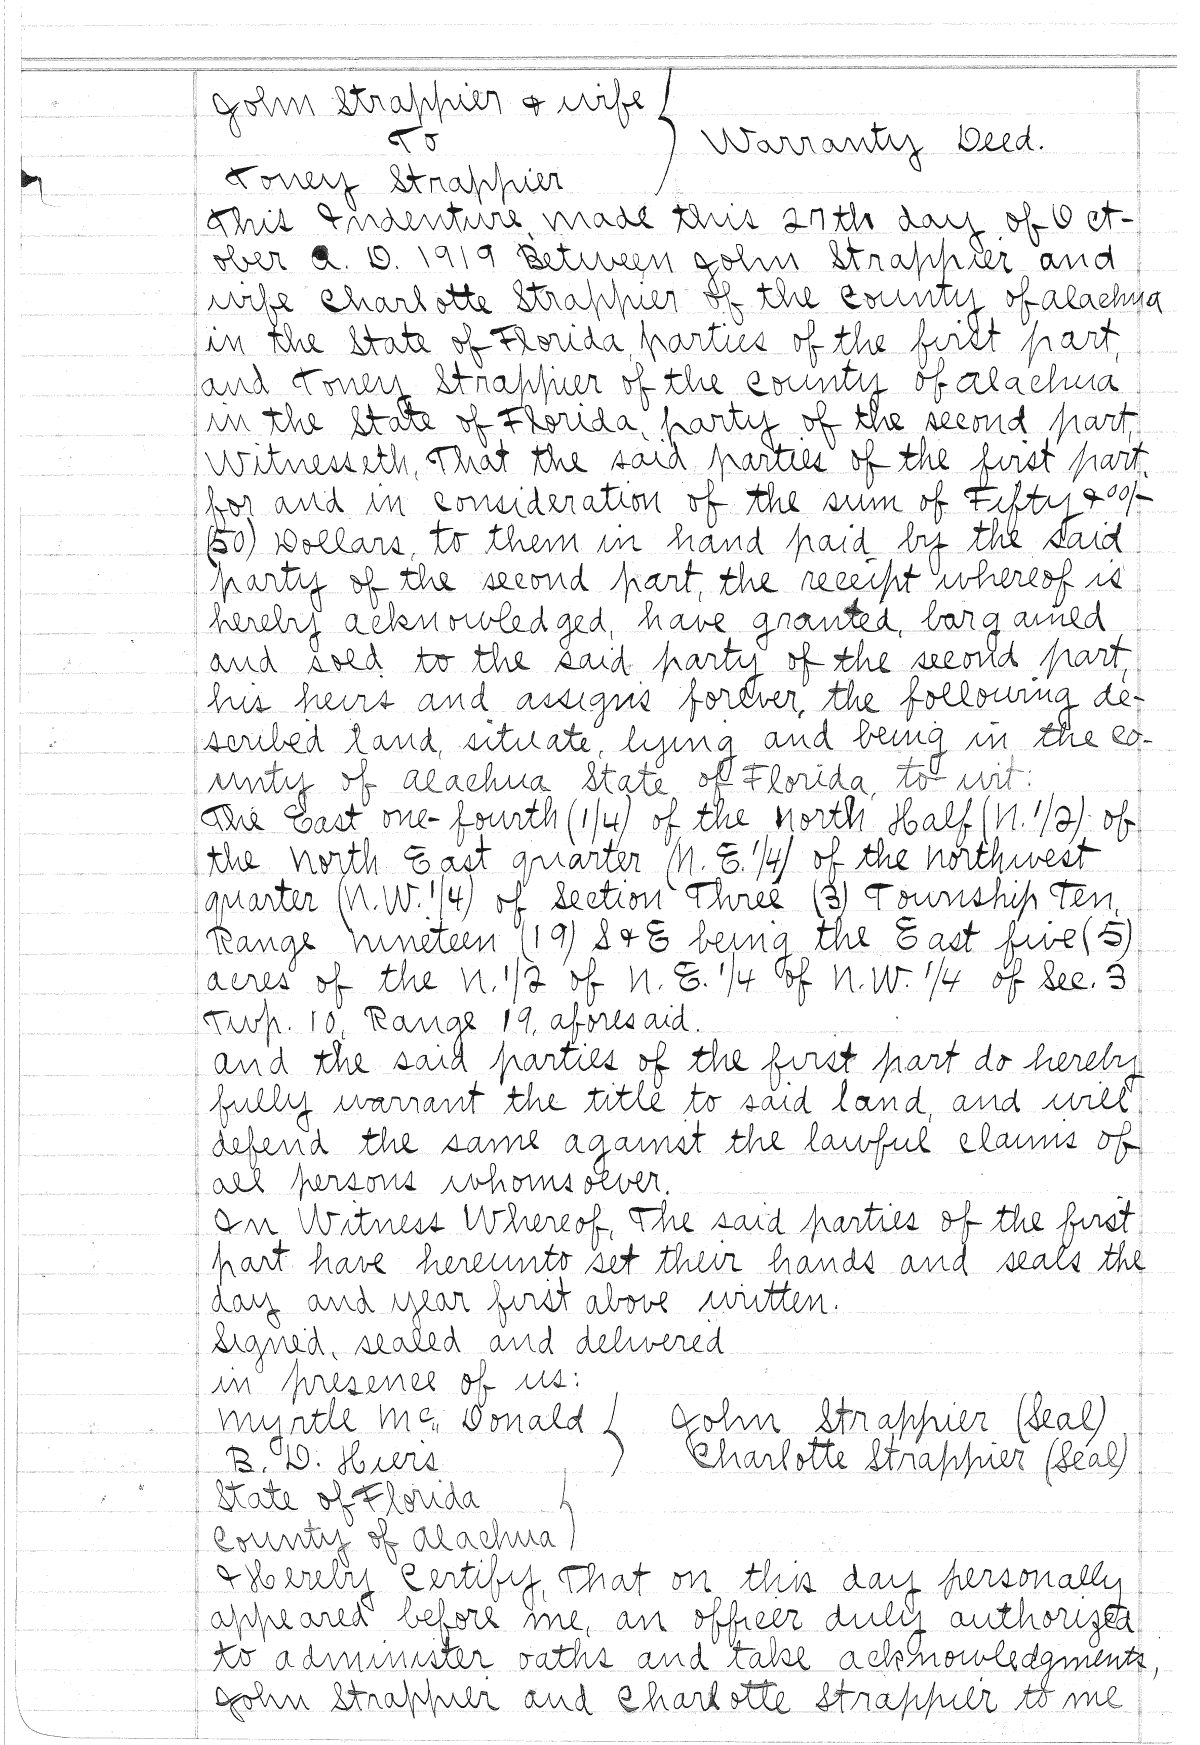 John Strappier & wife
To
Warranty Deed.
Toney Strappier
This Indenture, made this 27th day of Oct-
ober A. D. 1919 Between John Strappier and
wife Charlotte Strappier of the County of Alachua
in the State of Florida, parties of the first part,
and Toney Strappier of the County of Alachua
in the State of Florida, party of the second part,
Witnesseth, That the said parties of the first part,
for and in consideration of the sum of Fifty & 00/-
(50) Dollars, to them in hand paid by the said
party of the second part, the receipt whereof is
hereby acknowledged, have granted, bargained
and sold to the said party of the second part,
his heirs and assigns forever, the following de-
scribed land, situate, lying and being in the Co-
unty of Alachua State of Florida, to-wit:
The East one-fourth (1/4) of the North Half (N.1/2) of
the North East quarter (N.E.1/4) of the Northwest
quarter (N.W.1/4) of Section Three (3) Township Ten,
Range Nineteen (19) S & E being the East five (5)
acres of the N.1/2 of N.E.1/4 of N.W.1/4 of Sec. 3
Twp. 10, Range 19, aforesaid.
And the said parties of the first part do hereby
fully warrant the title to said land, and will
defend the same against the lawful claims of
all persons whomsoever.
In Witness Whereof, The said parties of the first
part have hereunto set their hands and seals the
day and year first above written.
Signed, sealed and delivered
in presence of us:
Myrtle Mc. Donald John Strappier (Seal)
B. D. Hiers Charlotte Strappier (Seal)
State of Florida
County of Alachua
I Hereby Certify, That on this day personally
appeared before me, an officer duly authorized
to administer oaths and take acknowledgments,
John Strappier and Charlotte Strappier to me